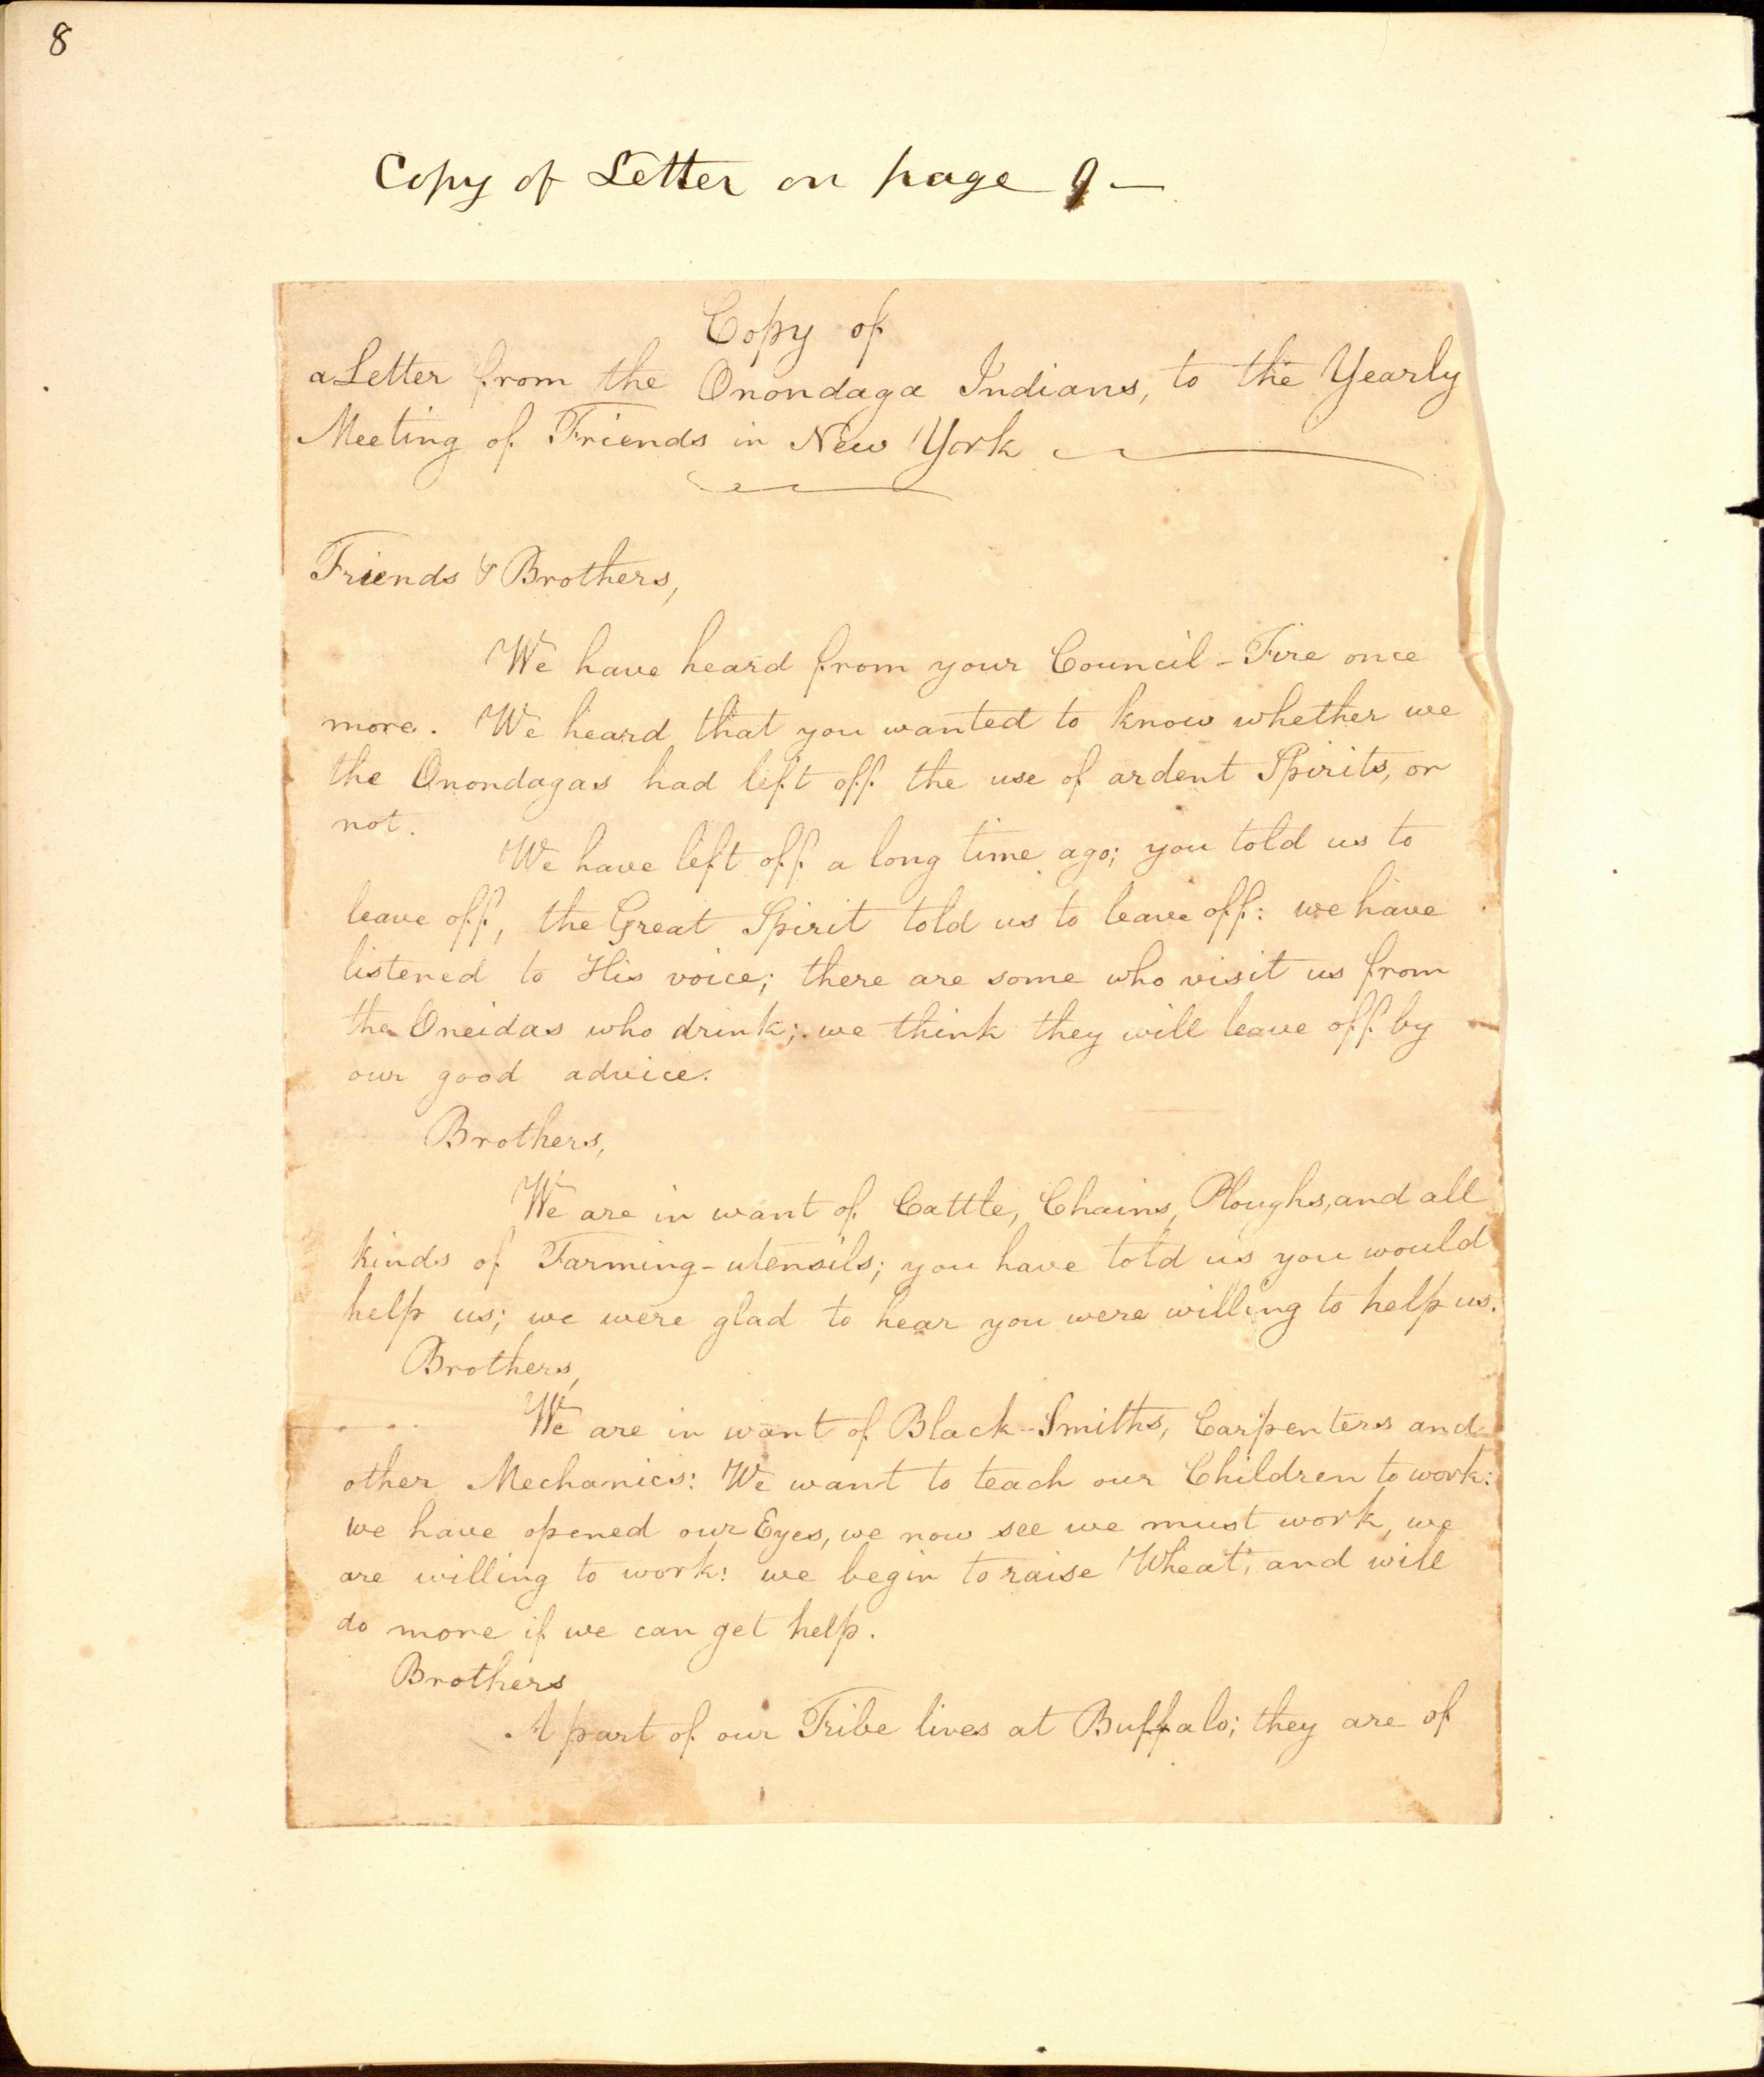 8
Copy of Letter on page 9 —
Copy of
a Letter from the Onondaga Indians, to the Yearly
Meeting of Friends in New York
Friends & Brothers,
We have heard from your Council-Fire once
more. We heard that you wanted to know whether we
the Onondagas had left off the use of ardent Spirits, or
not.
We have left off a long time ago; you told us to
leave off, the Great Spirit told us to leave off: we have
listened to His voice; there are some who visit us from
the Oneidas who drink; we think they will leave off by
our good advice.
Brothers,
We are in want of Cattle, Chains, Ploughs, and all
kinds of Farming-utensils; you have told us you would
help us; we were glad to hear you were willing to help us.
Brothers,
We are in want of Black-Smiths, Carpenters and
other Mechanics: We want to teach our Children to work:
we have opened our Eyes, we now see we must work, we
are willing to work: we begin to raise Wheat; and will
do more if we can get help.
Brothers
A part of our Tribe lives at Buffalo; they are of